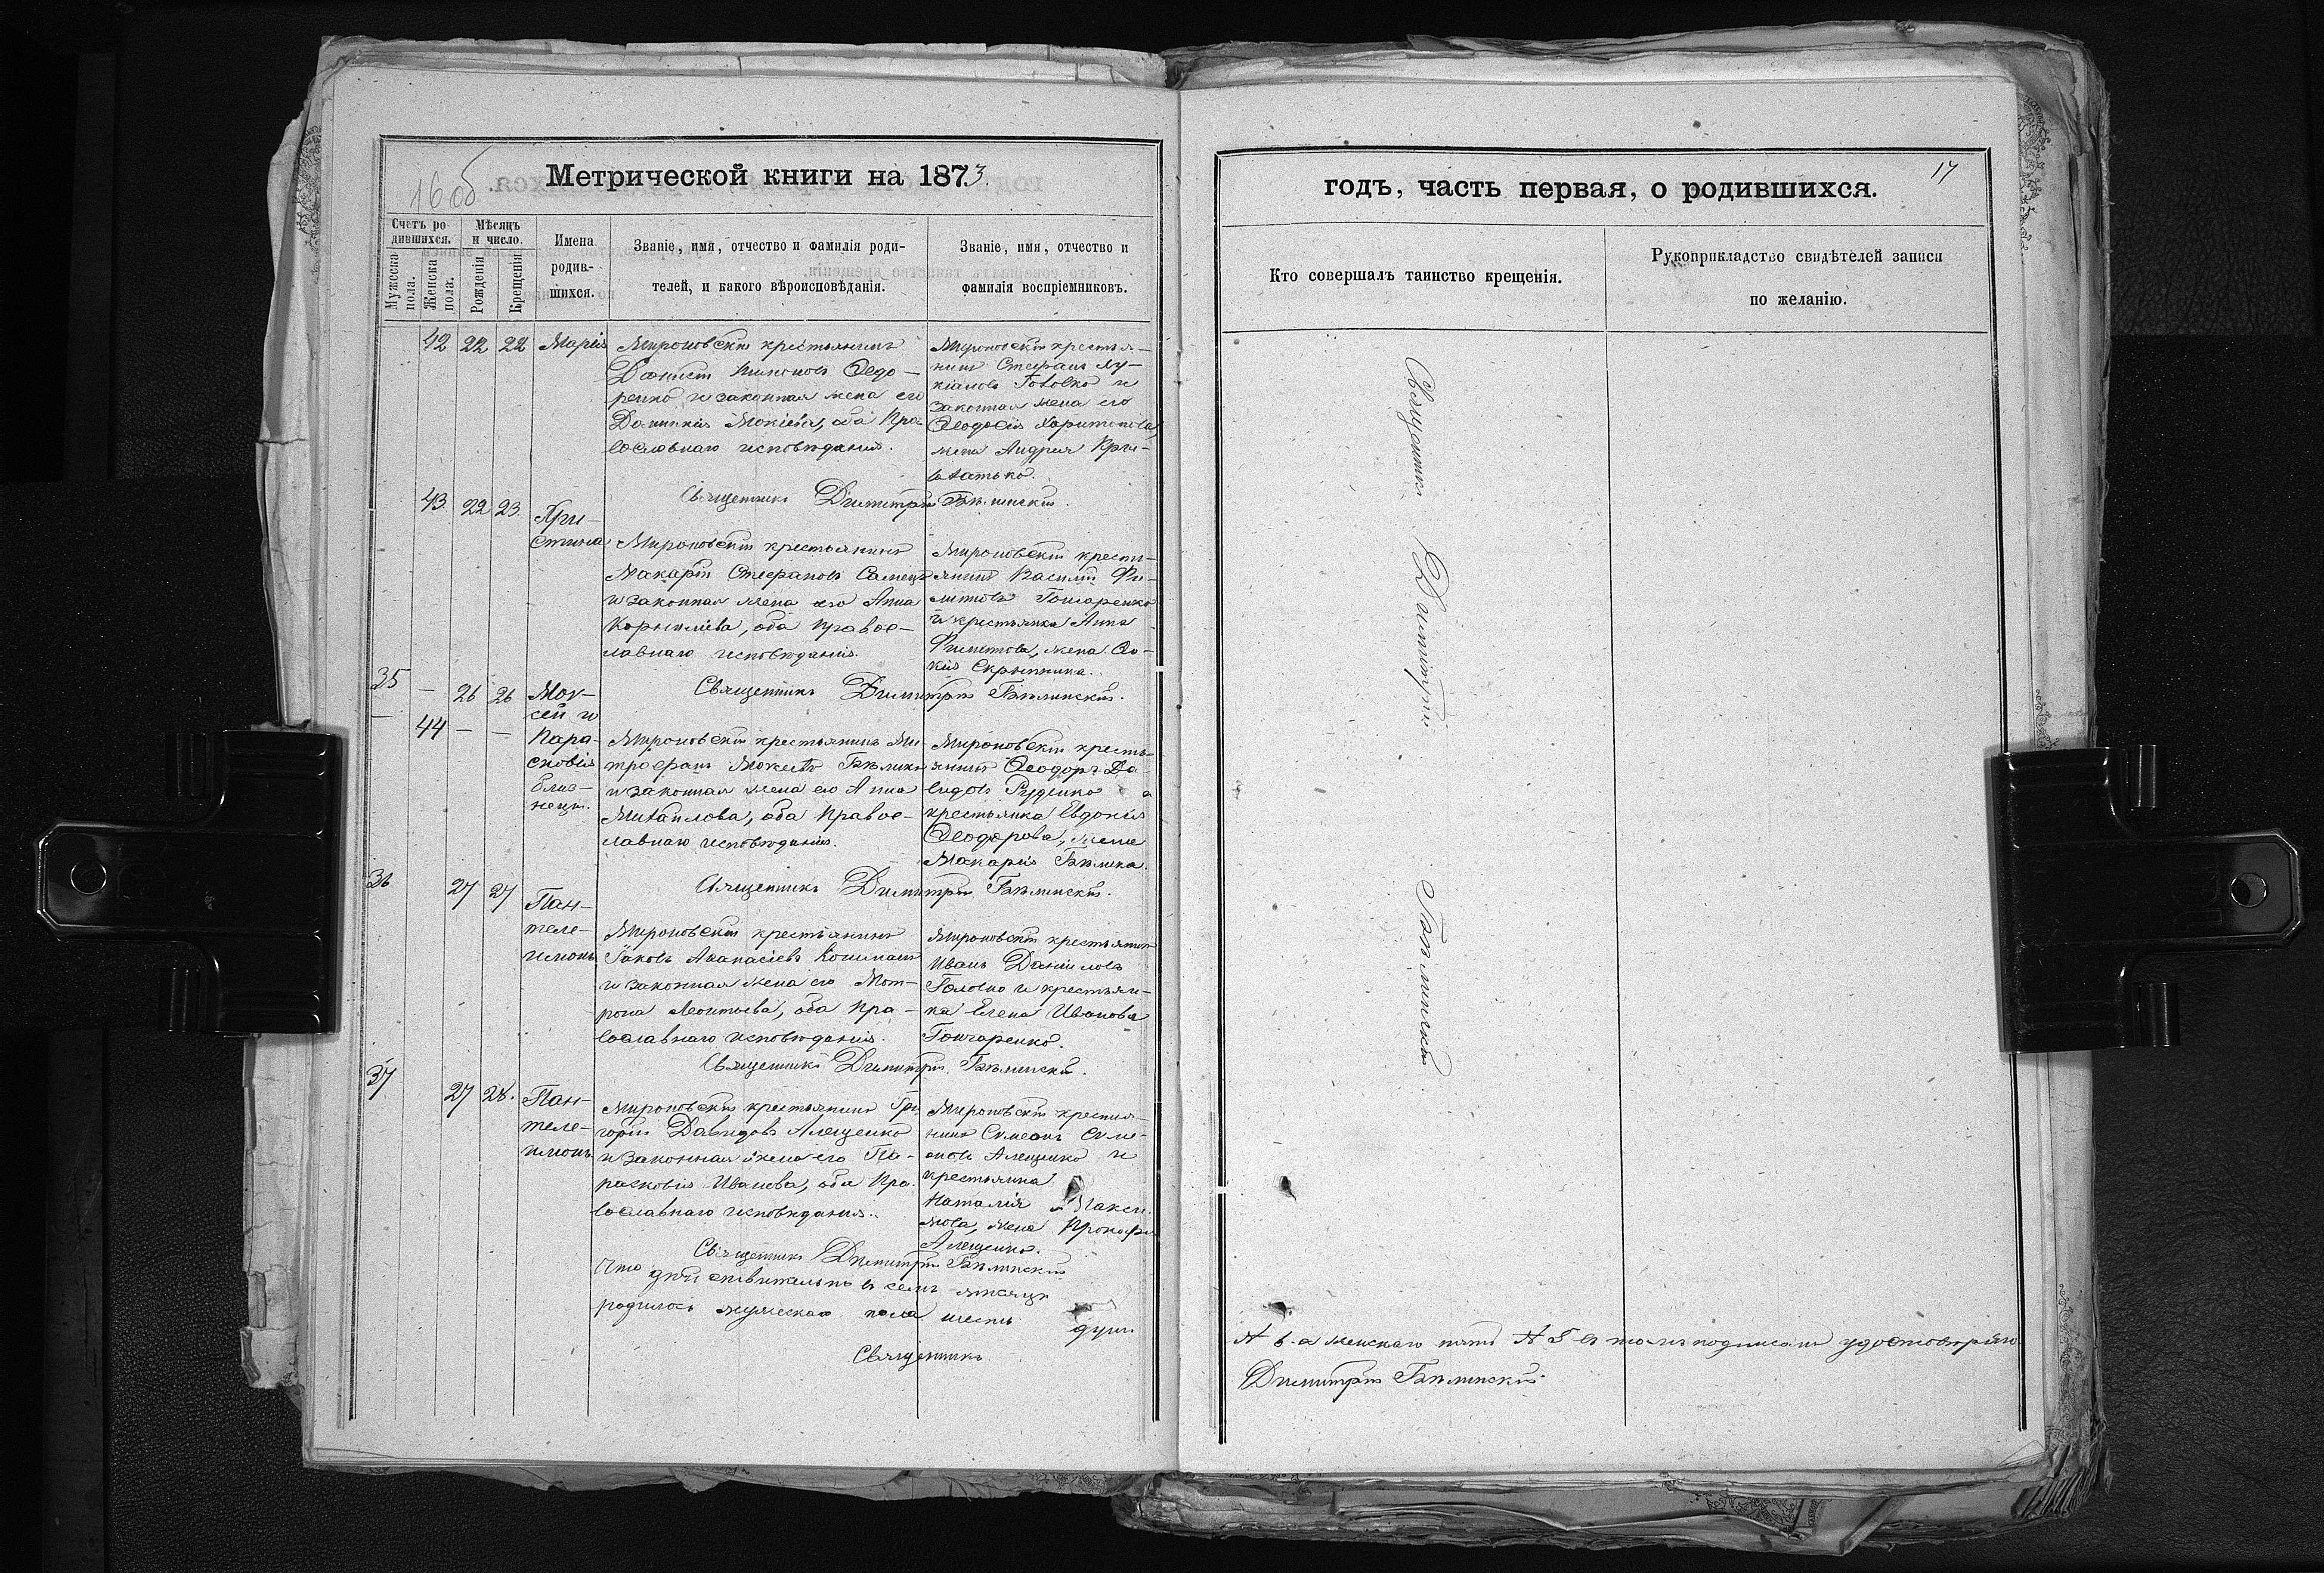 16 об
Метрической книги на 1873.
Счетъ ро
дившихся.
Мѣсяцъ
и число.
Мужеска
пола.
Женска
пола.
Рожденія
Крещенія
Имена
родив-
шихся.
Званіе, имя, отчество и фамилія роди-
телей, и какого вѣроисповѣданія.
Званіе, имя, отчество и
фамилія воспріемниковъ.
42 22 22 Марія
Мироновскій крестьянинъ
Ѳедо-
ренко и законная жена его
Домникія Мокіева, оба Пра-
вославнаго исповѣданія.
Мироновскій крестья-
нинъ Стефанъ Лу-
кіановъ Головко и
законная жена его
Ѳеодосія Харитонова,
жена Андрея
Священникъ Димитрій Бѣлинскій.
43 22 23. Хри-
стина
Мироновскій крестьянинъ
Макарій Стефановъ
и законная жена его Анна
Корниліева, оба правос-
лавнаго исповѣданія.
Мироновскій кресть-
янинъ Василій Фи-
липповъ Гончаренко
и крестьянка Анна
Филиппова, жена
Скрыпника.
Священникъ Димитрій Бѣлинскій.
35 — 26 26 Мои-
сей и
— 44 — — Пара-
сковія
близ-
нецы.
Мироновскій крестьянинъ Ми-
трофанъ Бѣликъ
и законная жена его Анна
Михаилова, оба правос-
лавнаго исповѣданія.
Мироновскій кресть-
янинъ Ѳеодоръ Да-
видовъ Руденко и
крестьянка Евдокія
Ѳеодорова, жена
Макарія Бѣлика.
Священникъ Димитрій Бѣлинскій.
36 27 27 Пан-
теле-
имонъ.
Мироновскій крестьянинъ
Іаковъ Аѳанасіевъ
и законная жена его Мот-
рона Леонтьева, оба пра-
вославнаго исповѣданія.
Мироновскій крестьянинъ
Иванъ Даниловъ
Головко и крестьян-
ка Елена Иванова
Гончаренко.
Священникъ Димитрій Бѣлинскій.
37 27 28. Пан-
теле-
имонъ.
Мироновскій крестьянинъ Гри-
горій Давидовъ Алещенко
и законная жена его Па-
расковія Иванова, оба Пра-
вославнаго исповѣданія.
Мироновскій крестья-
нинъ Симеонъ Симе-
оновъ Алещенко и
крестьянка
Наталія Макси-
мова, жена Прокофія
Алещенко.
Священникъ Димитрій Бѣлинскій
Что дѣйствительно въ семъ мѣсяцѣ
родилось мужескаго пола шесть
душъ
Священникъ
17
годъ, часть первая, о родившихся.
Кто совершалъ таинство крещенія.
Рукоприкладство свидѣтелей записи
по желанію.
Священникъ Димитрій Бѣлинскій
№ 6. а женскаго пять № 5 въ томъ подписомъ удостовѣряю
Димитрій Бѣлинскій